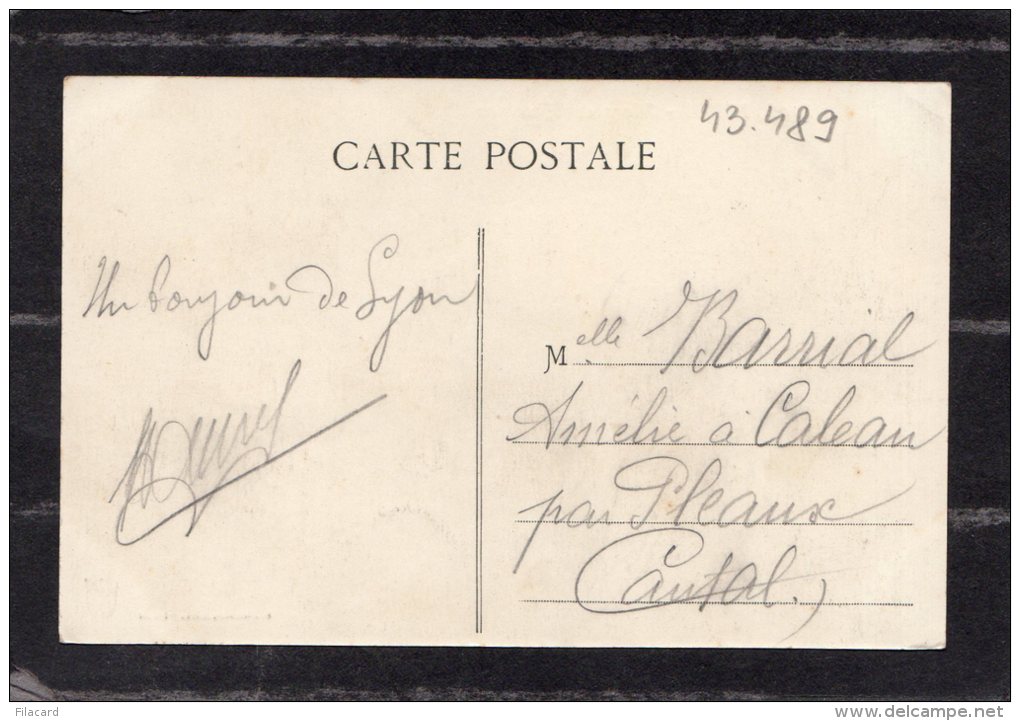 43.489
CARTE POSTALE
Un bonjour de Lyon
Melle Barrial
Amélie à Caleau
par Pleaux
(Cantal.)
Filacard
delcampe.net